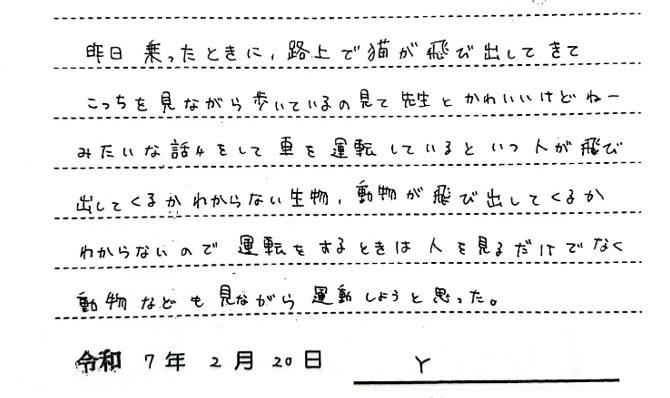 昨日乗ったときに、路上で猫が飛び出してきて
こっちを見ながら歩いているの見て先生とかわいいけどねー
みたいな話々をして車を運転しているといつ人が飛び
出してくるかわからない生物、動物が飛び出してくるか
わからないので運転をするときは人を見るだけでなく
動物なども見ながら運動しようと思った。
令和 7年 2月 20日 Y